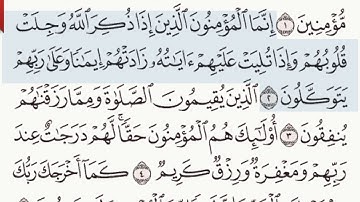 مُّؤۡمِنِينَ ١ إِنَّمَا ٱلۡمُؤۡمِنُونَ ٱلَّذِينَ إِذَا ذُكِرَ ٱللَّهُ وَجِلَتۡ
قُلُوبُهُمۡ وَإِذَا تُلِيَتۡ عَلَيۡهِمۡ ءَايَٰتُهُۥ زَادَتۡهُمۡ إِيمَٰنٗا وَعَلَىٰ رَبِّهِمۡ
يَتَوَكَّلُونَ ٢ ٱلَّذِينَ يُقِيمُونَ ٱلصَّلَوٰةَ وَمِمَّا رَزَقۡنَٰهُمۡ
يُنفِقُونَ ٣ أُوْلَٰٓئِكَ هُمُ ٱلۡمُؤۡمِنُونَ حَقّٗاۚ لَّهُمۡ دَرَجَٰتٌ عِندَ
رَبِّهِمۡ وَمَغۡفِرَةٞ وَرِزۡقٞ كَرِيمٞ ٤ كَمَآ أَخۡرَجَكَ رَبُّكَ